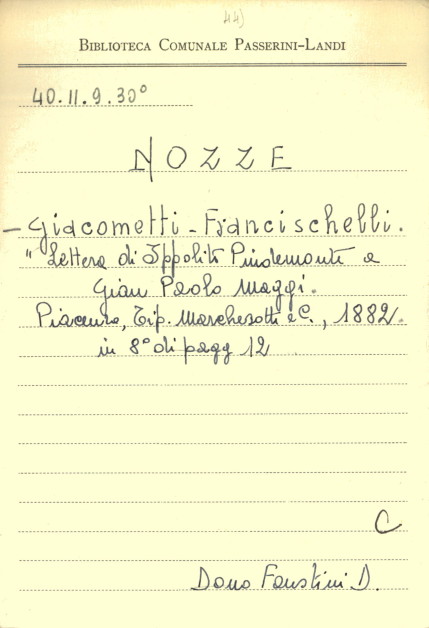 44)
BIBLIOTECA COMUNALE PASSERINI-LANDI
40.II.9.30°
NOZZE
- Giacometti - Francischelli.
" Lettera di Ippolito Pindemonte a
Gian Paolo Maggi.
Piacenza, Tip. Marchesotti e C., 1882.
in 8° di pagg 12
C
Dono Faustini D.